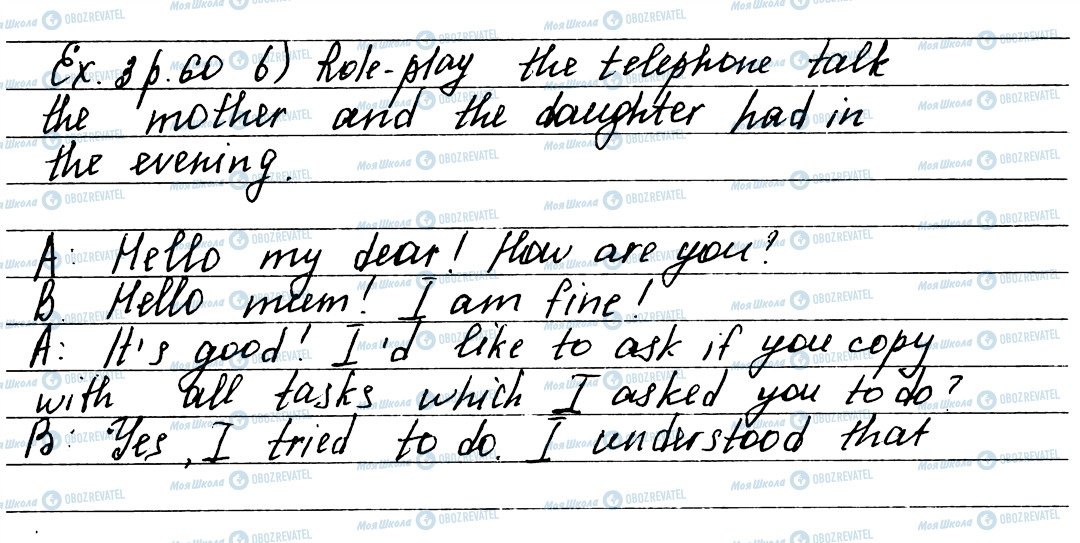 Ex. 3 p. 60 b) Role-play the telephone talk
the mother and the daughter had in
the evening.
A: Hello my dear! How are you?
B. Hello mum! I am fine!
A: It's good! I'd like to ask if you copy
with all tasks which I asked you to do?
B: Yes, I tried to do. I understood that
МояШкола OBOZREVATEL